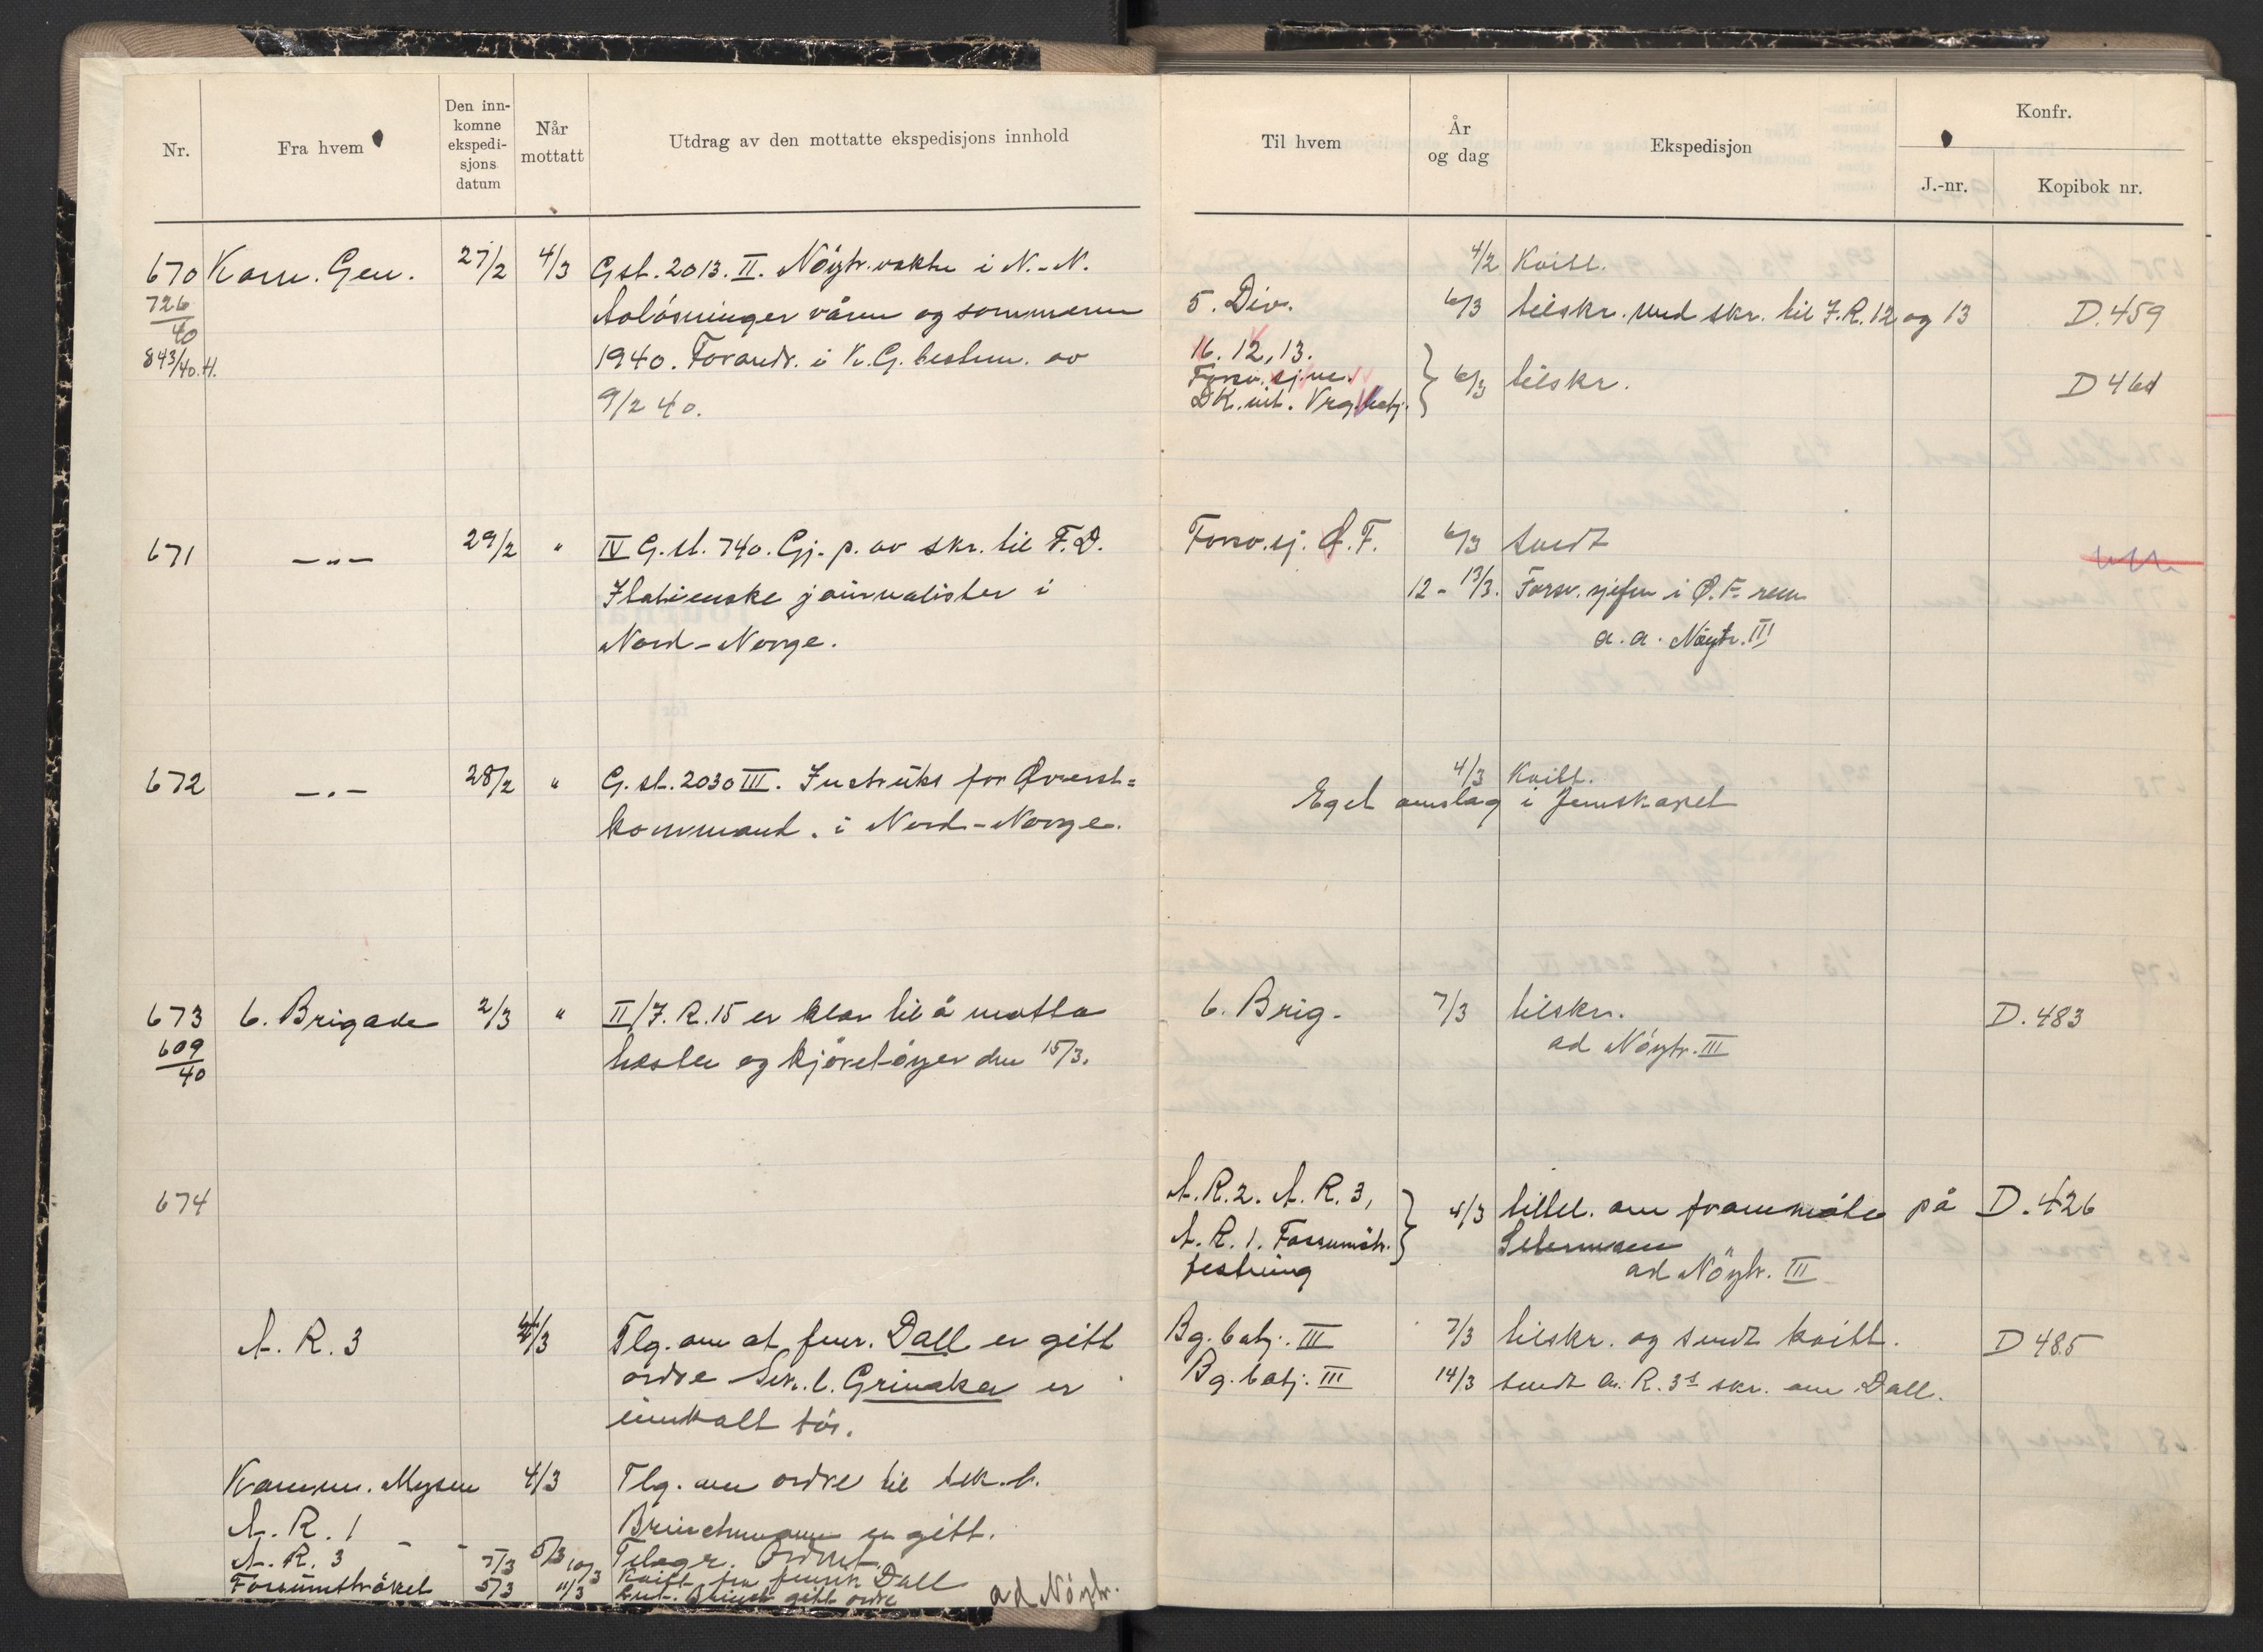 Nr.
Fra hvem
Den inn-
komne
ekspedi-
sjons
datum
Når
mottatt
Utdrag av den mottatte ekspedisjons innhold
670 Kom. Gen. 27/2 4/3 Gst. 2013. II. Nöytr.vakten i N.-N.
726
40
Avlösninger våren og sommeren
843/40.H. 1940. Forandr. i K.G. bestem. av
9/2 40.
671 —„— 29/2 „ IV G.st. 740. Gj.p. av skr. til F.D.
Italienske journalister i
Nord-Norge.
672 —„— 28/2 „ G.st. 2030 III. Instruks for Øverst=
kommand. i Nord-Norge.
673 6. Brigade 2/3 „ II/I.R.15 er klar til å motta
609
40
hester og kjöretöyer den 15/3.
674
A.R.3 4/3 Tlg. om at fenr. Dall er gitt
ordre Sek.l. Grinaker er
innkalt för.
Komm. Mysen 4/3 Tlg. om ordre til sek.l.
A.R. 1 - - Brinchmann er gitt.
A.R. 3 7/3 5/3 10/3 Telegr. Ordnet.
Kvitt. fra fenrik Dall
Fossumströket 5/3 11/3 gitt ordre
ad Nöytr.
Til hvem
År
og dag
Ekspedisjon
Konfr.
J.-nr.
Kopibok nr.
4/2 Kvitt.
5. Div. 6/3 tilskr. med skr. til I.R.12 og 13 D.459
16. 12, 13.
Forsv.sj.
DK. int. 6/3 tilskr. D 461
Forsv.sj. Ø.F. 6/3 sendt
12 - 13/3. Forsv.sjefen i Ø.F. rem
a.a. Nöytr. III
4/3 Kvitt.
Eget omslag i Jernskapet
6. Brig. 7/3 tilskr. D.483
ad Nöytr. III
A.R.2. A.R.3, 4/3 tillel. om frammöte på D.426
A.R.1. Fossumstr.
Setermoen
festning
ad Nöytr. III
Bg.batj. III 7/3 tilskr. og sendt kvitt. D 485
Bg.batj. III 14/3 sendt A.R. 3s skr. om Dall.